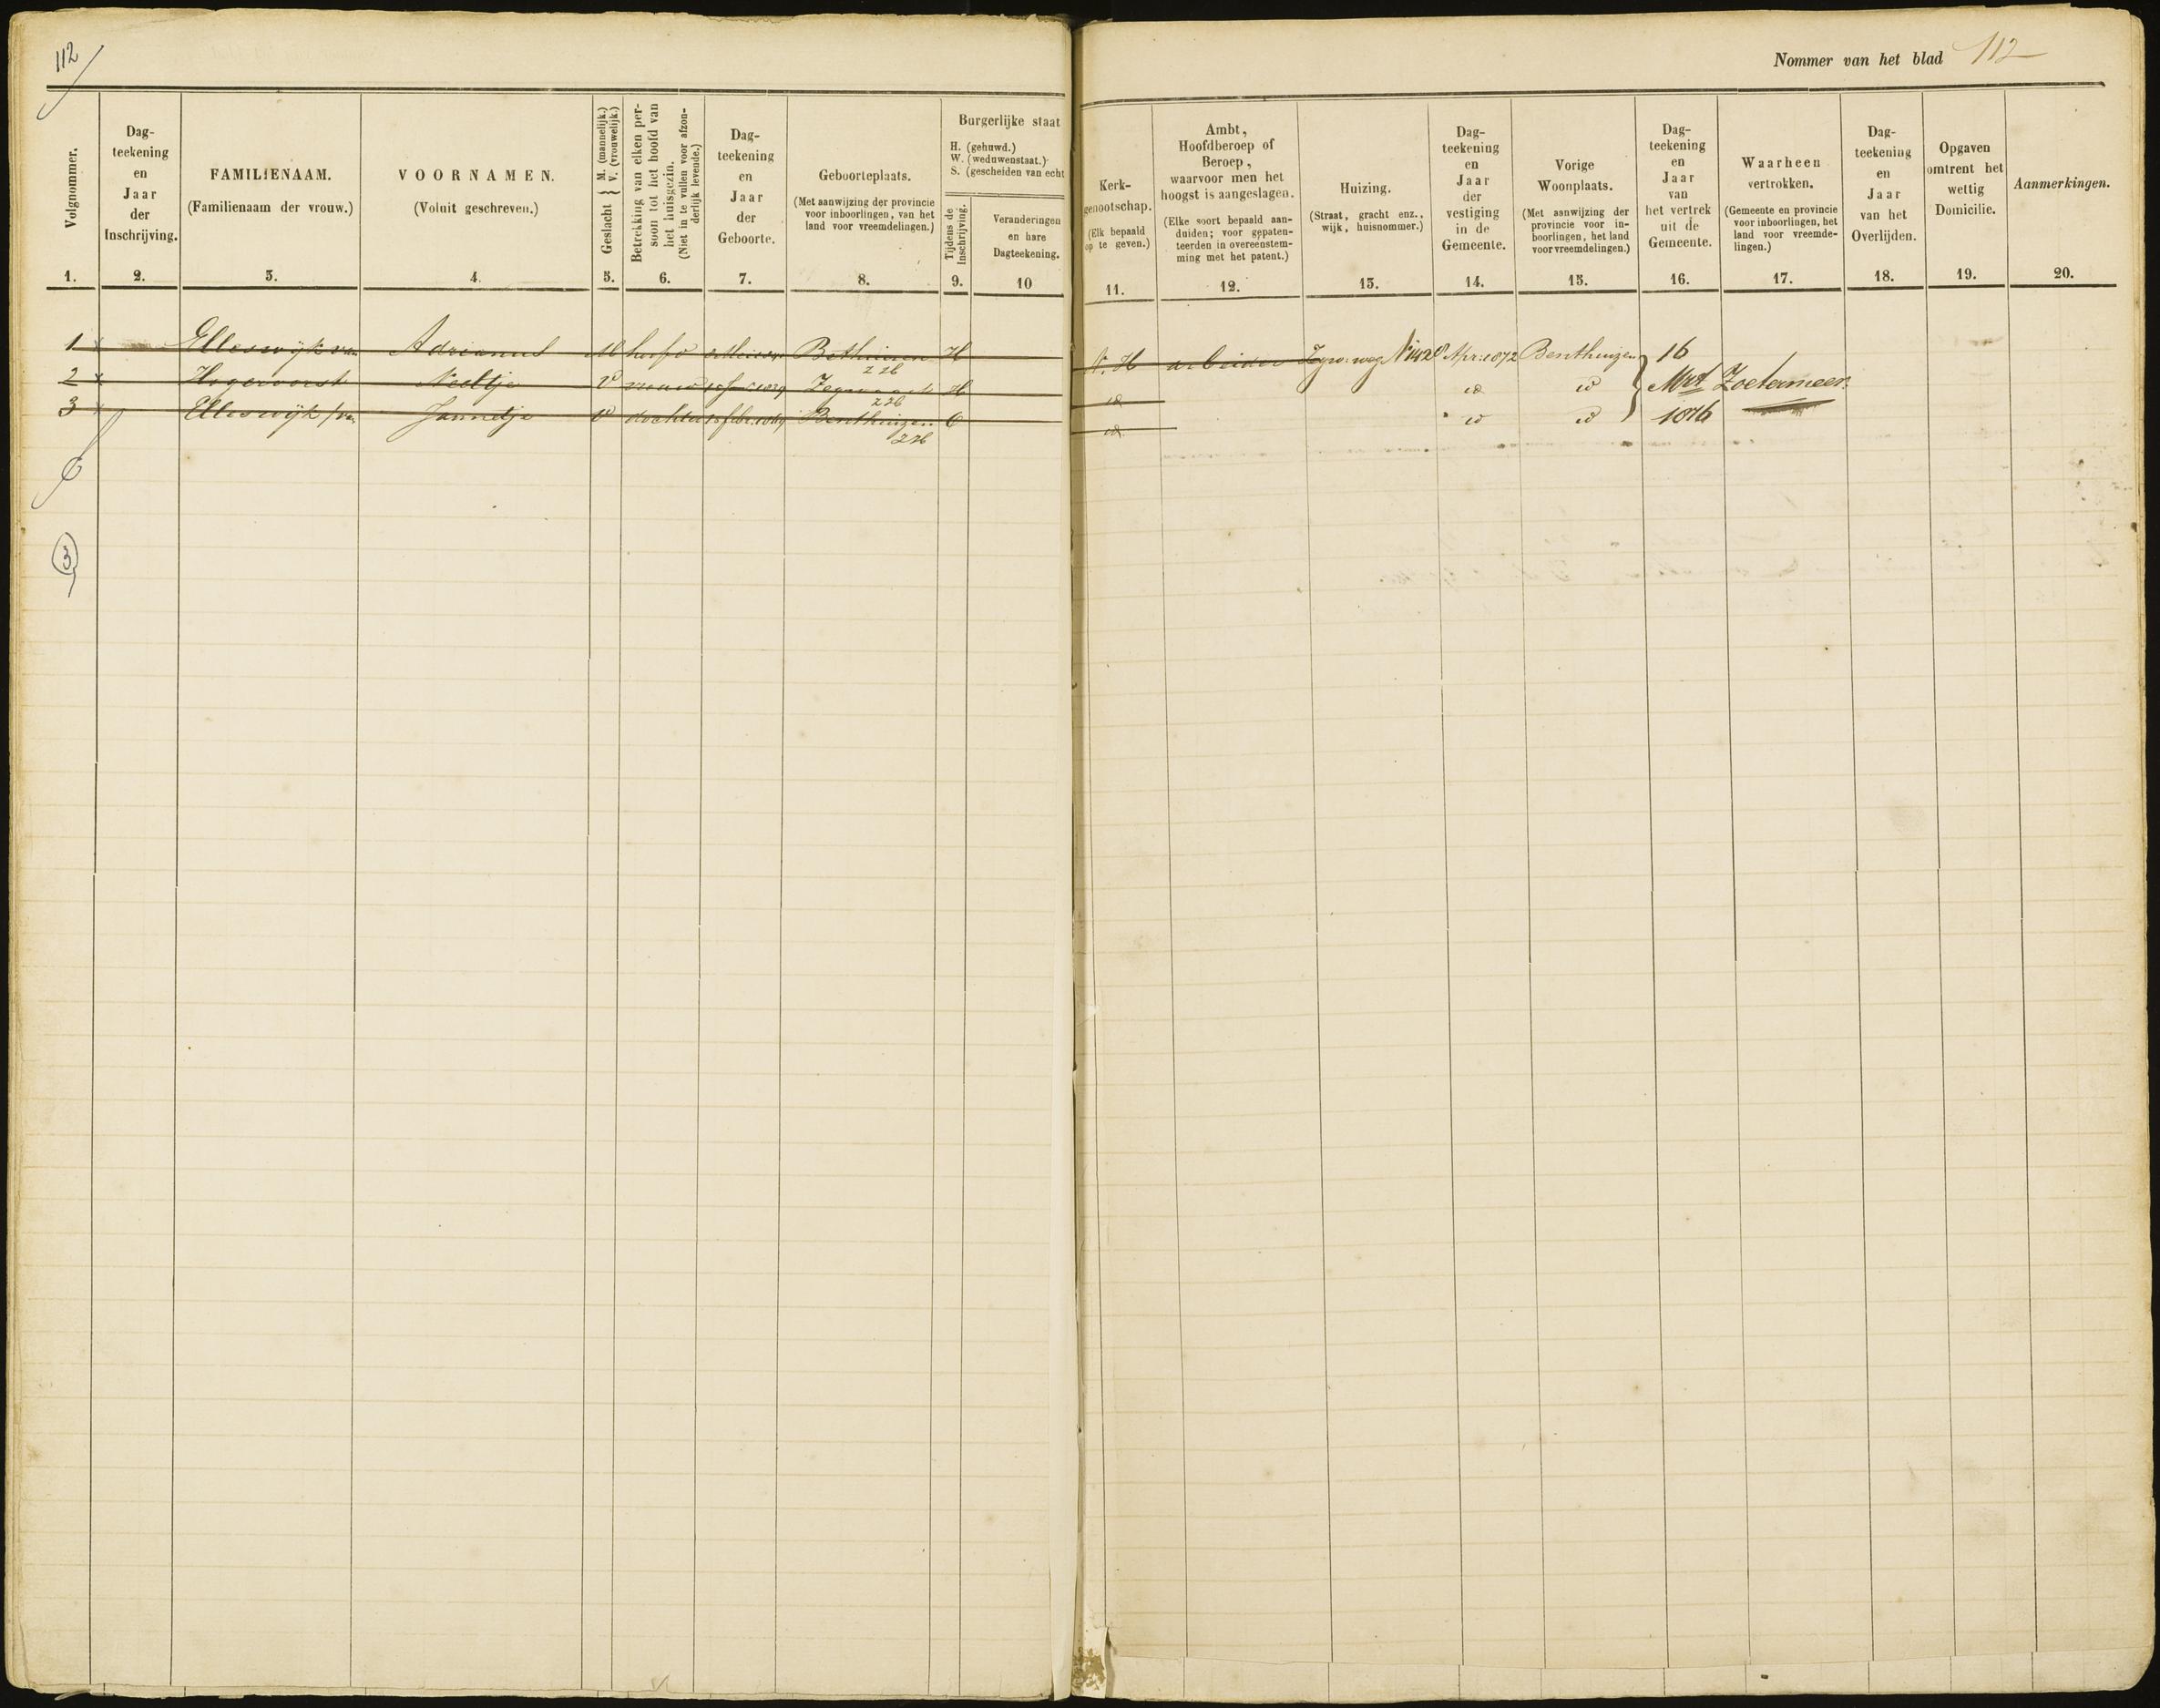 112
Nommer van het blad 112
Volgnommer.
1.
Dag-
teekening
en
Jaar
der
Inschrijving.
2.
FAMILIENAAM.
(Familienaam der vrouw.)
3.
VOORNAMEN.
(Voluit geschreven.)
4.
Geslacht } M. (mannelijk.)
V. (vrouwelijk.)
5.
Betrekking van elken per-
soon tot het hoofd van
het huisgezin.
(Niet in te vullen voor afzon-
derlijk levende.)
6.
Dag-
teekening
en
Jaar
der
Geboorte.
7.
Geboorteplaats.
(Met aanwijzing der provincie
voor inboorlingen, van het
land voor vreemdelingen.)
8.
Burgerlijke staat
H. (gehuwd.)
W. (weduwenstaat.)
S. (gescheiden van echt
Tijdens de
Inschrijving.
9.
Veranderingen
en hare
Dagteekening.
10
Kerk-
genootschap.
(Elk bepaald
op te geven.)
11.
Ambt,
Hoofdberoep of
Beroep,
waarvoor men het
hoogst is aangeslagen.
(Elke soort bepaald aan-
duiden; voor gepaten-
teerden in overeenstem-
ming met het patent.)
12.
Huizing.
(Straat, gracht enz.,
wijk, huisnommer.)
13.
Dag-
teekening
en
Jaar
der
vestiging
in de
Gemeente.
14.
Vorige
Woonplaats.
(Met aanwijzing der
provincie voor in-
boorlingen, het land
voor vreemdelingen.)
15.
Dag-
teekening
en
Jaar
van
het vertrek
uit de
Gemeente.
16.
Waarheen
vertrokken.
(Gemeente en provincie
voor inboorlingen, het
land voor vreemde-
lingen.)
17.
Dag-
teekening
en
Jaar
van het
Overlijden.
18.
Opgaven
omtrent het
wettig
Domicilie.
19.
Aanmerkingen.
20.
1 Elleswijk van Adrianus M hoofd H N. H arbeider Apr: 1872 Benthuizen 16
ZH
2 Hogervorst Neeltje V vrouw H id id id Mrt Zoetermeer
ZH
3 Elleswijk van Jannetje V dochter Benthuizen O id id id 1876
ZH
3